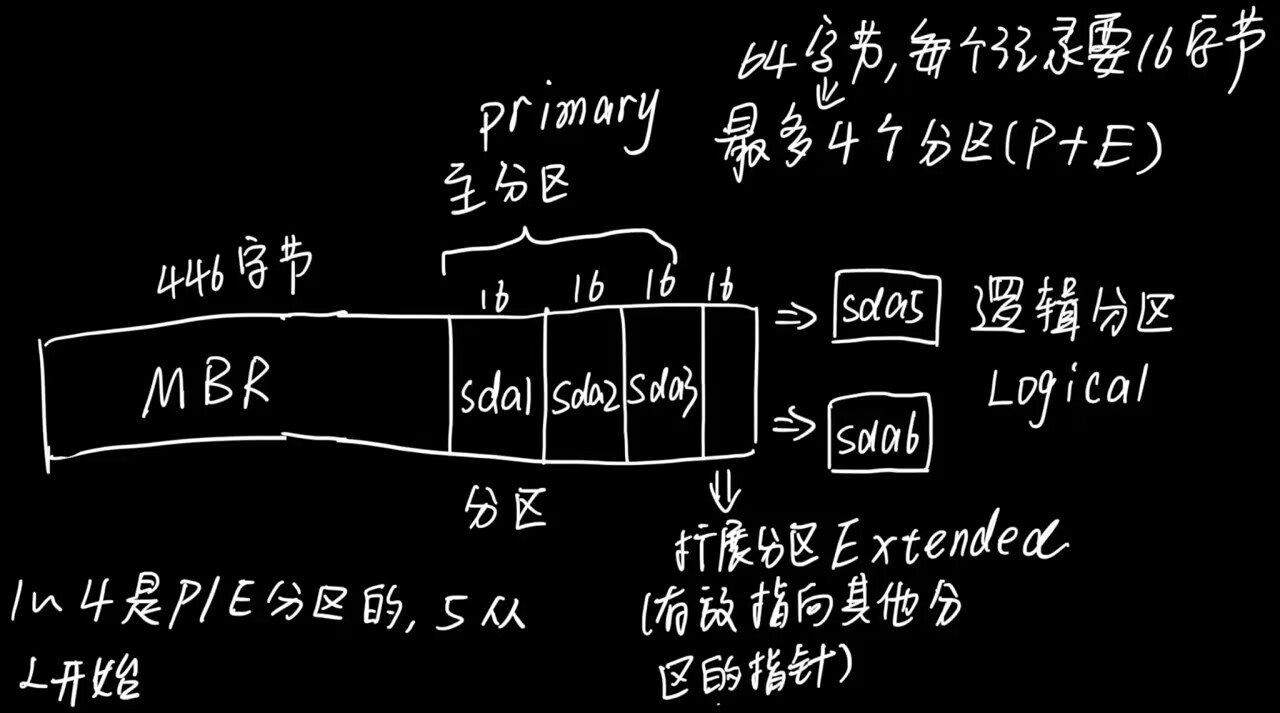 64字节,每个记录要16字节
最多4个分区(P+E)
primary
主分区
446字节
16 16 16 16
MBR
sda1 sda2 sda3
sda5
逻辑分区
Logical
sda6
分区
扩展分区Extended
(存放指向其他分
区的指针)
1~4是P/E分区的, 5从
L开始